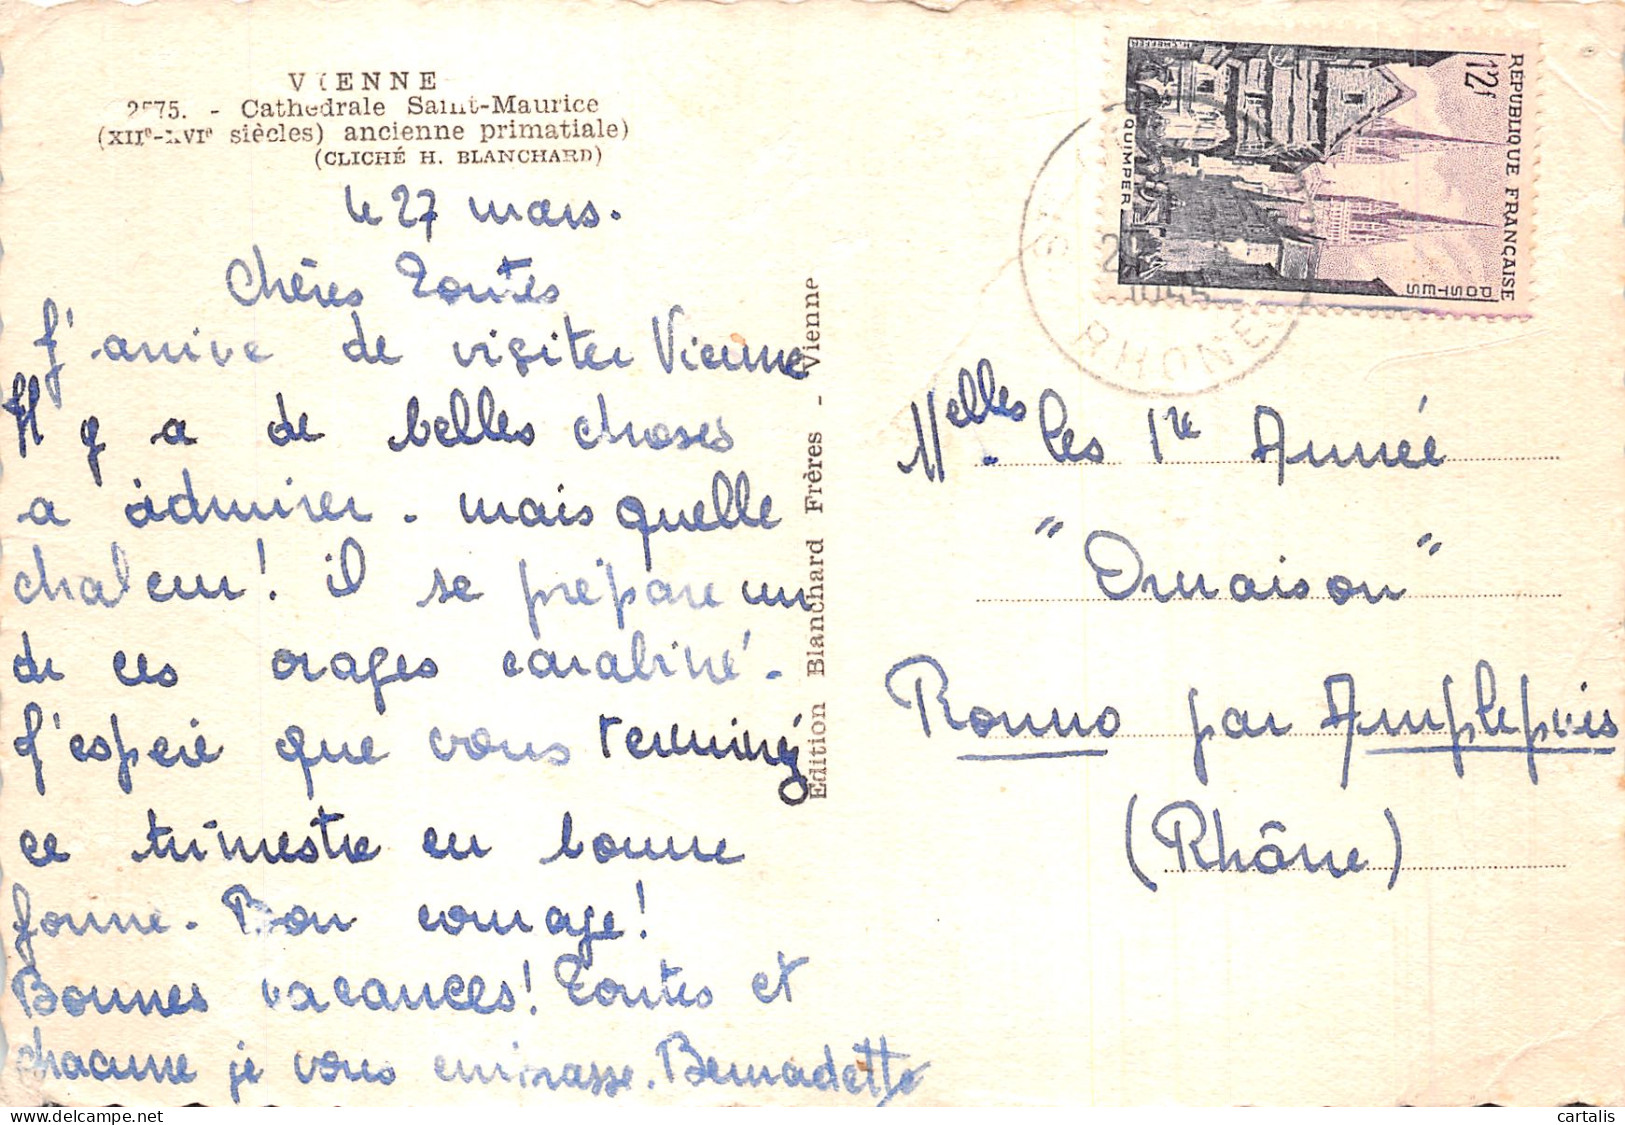 VIENNE
2575. - Cathédrale Saint-Maurice
(XIIe-XVIe siècles) ancienne primatiale)
(CLICHÉ H. BLANCHARD)
le 27 mars.
Chères Toutes
J'arrive de visiter Vienne
Il y a de belles choses
a admirer. mais quelle
chaleur! il se prépare un
de ces orages carabiné.
J'espère que vous terminéz
ce trimestre en bonne
forme. Bon courage!
Bonnes vacances! Toutes et
chacune je vous embrasse. Bernadette
Edition Blanchard Frères - Vienne
RÉPUBLIQUE FRANÇAISE
12f
POSTES
QUIMPER
H. CHEFFER
RHONE
Melles les 1re Année
"Ornaison"
Ronno par Amplepuis
(Rhône)
cartalis